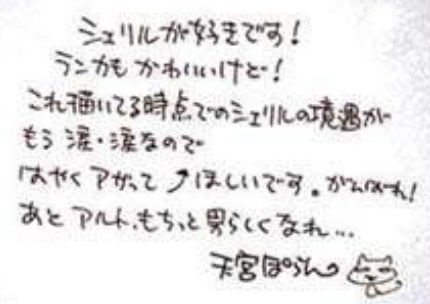 シェリルが好きです!
ランカも かわいいけど!
これ描いてる時点でのシェリルの境遇が
もう 涙・涙なので
はやく アがって⤴ほしいです。がんばれ!
あと アルト、もちっと男らしくなれ…
天宮ぽらん